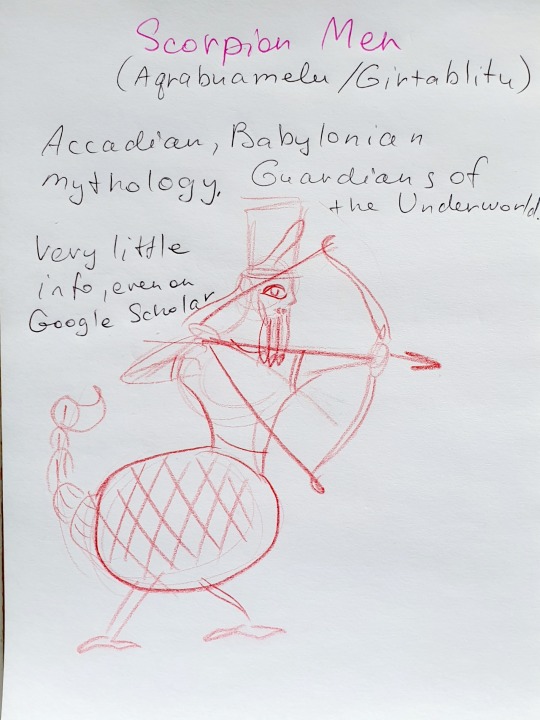 Scorpion Men
(Aqrabuamelu/Girtablitu)
Accadian, Babylonian
mythology. Guardians of
the Underworld.
Very little
info, even on
Google Scholar